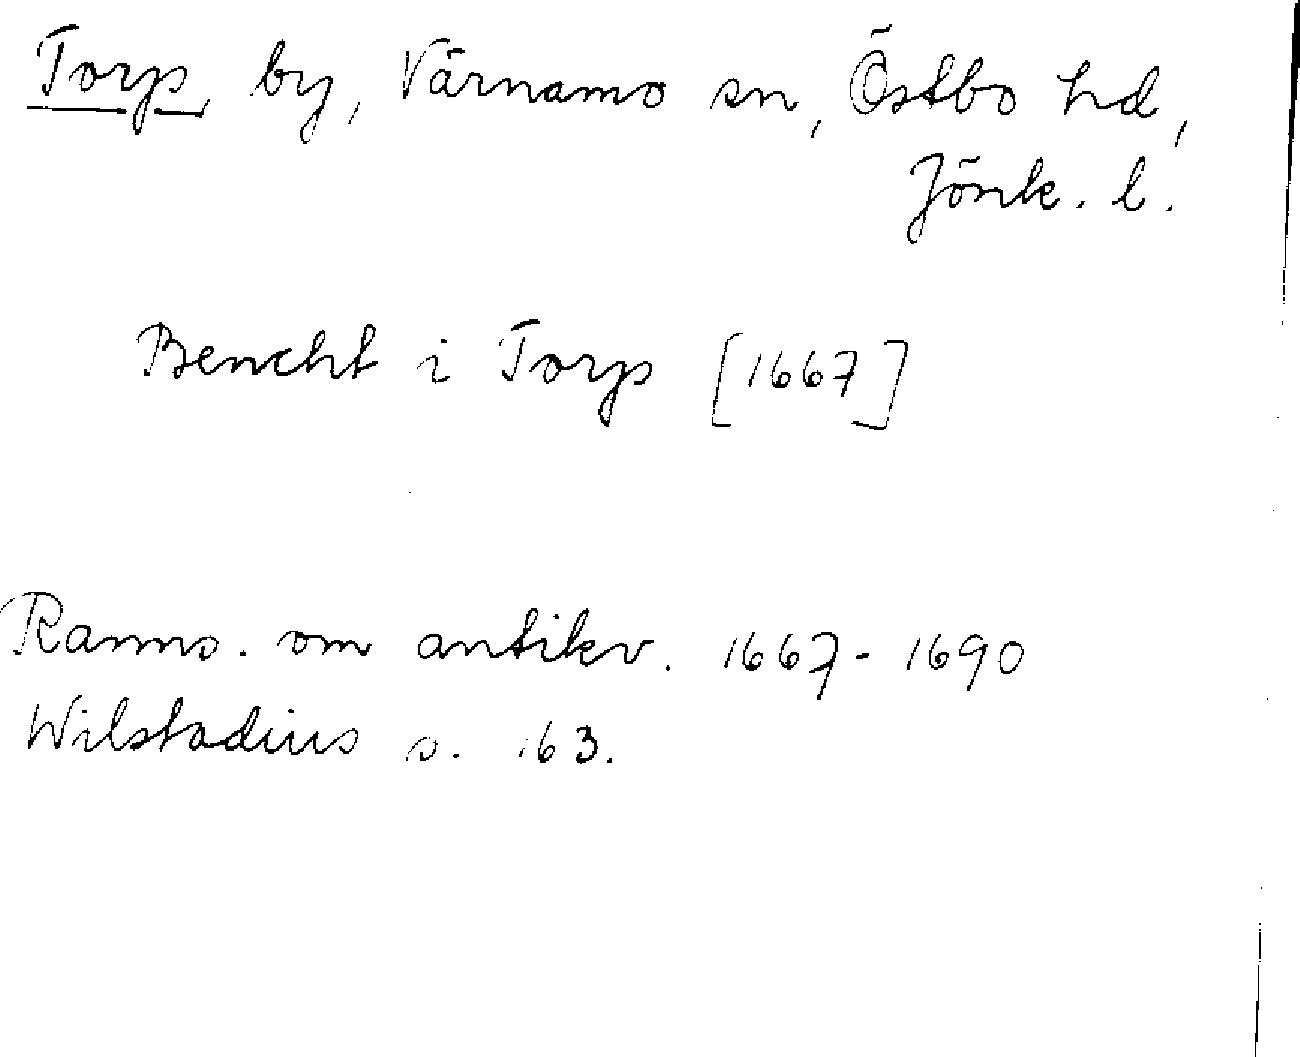 Torp, by, Värnamo sn, Östbo hd,
Jönk. l.
Bencht i Torp [1667]
Ranns. om antikv. 1667-1690
Wilstadius s. 163.